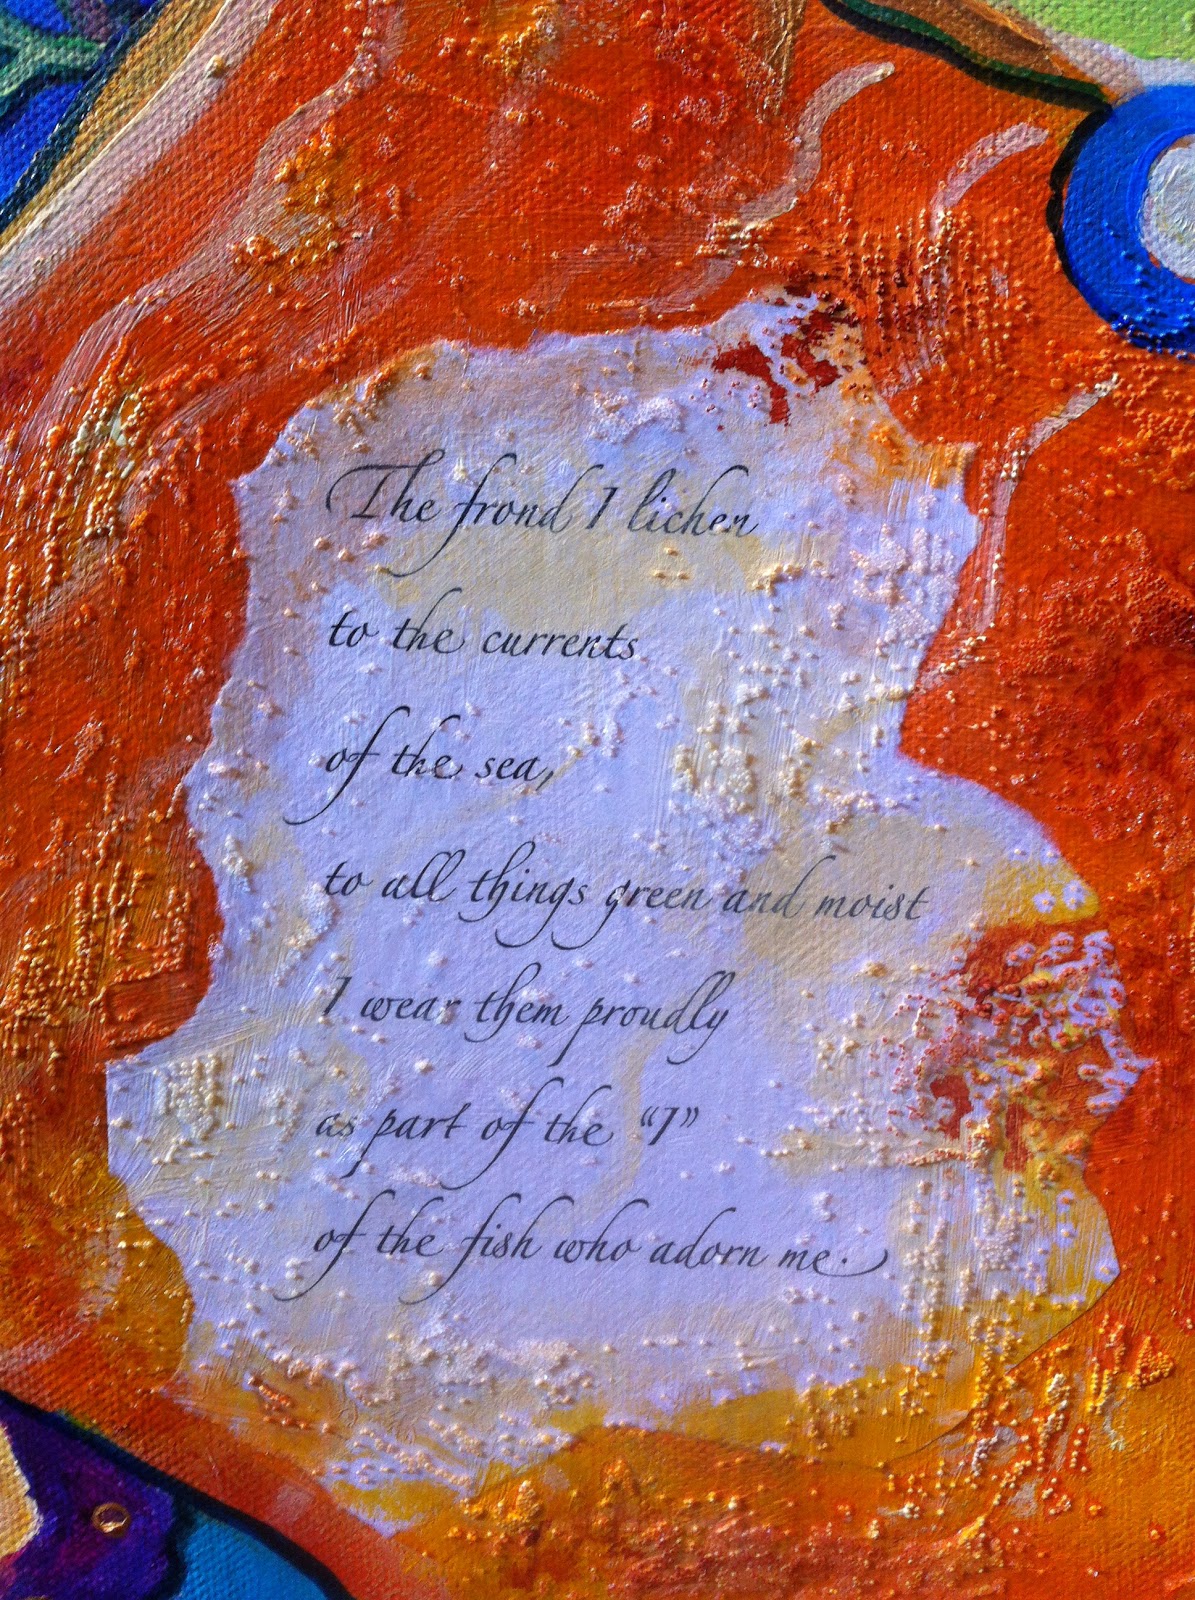 The frond I lichen
to the currents
of the sea,
to all things green and moist
I wear them proudly
as part of the “I”
of the fish who adorn me.